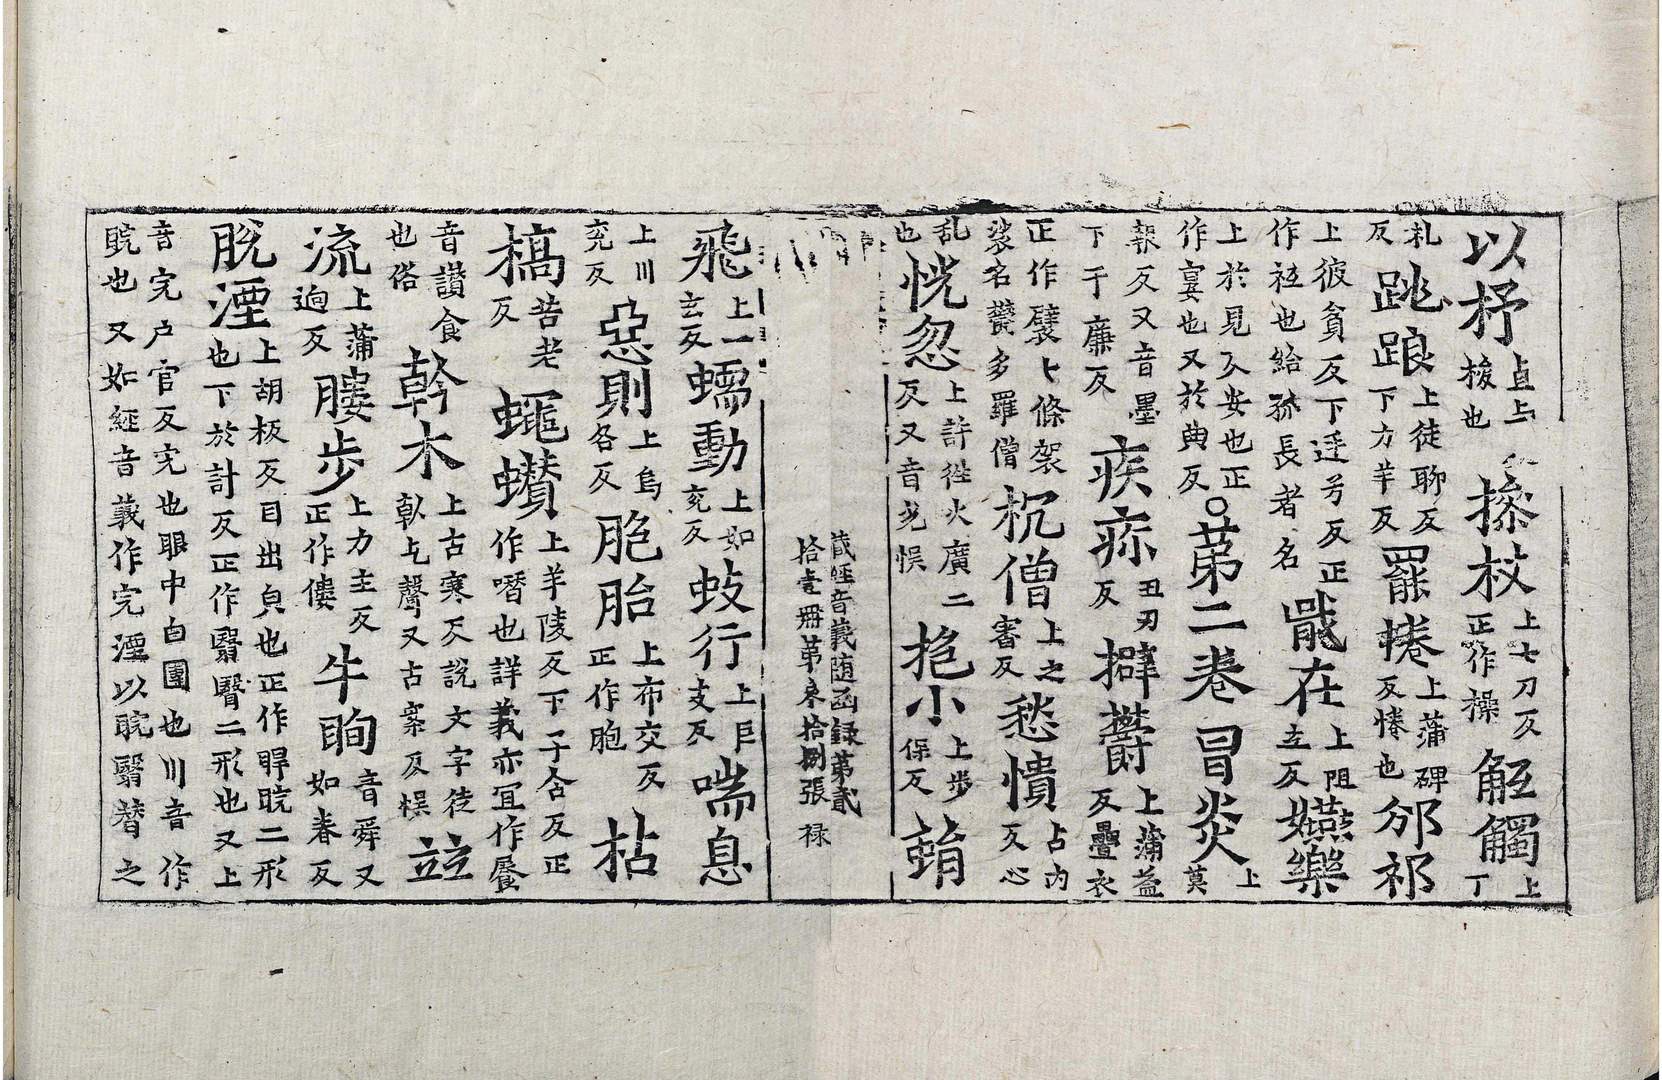 以杼直上梭也摻杖上七刀反正作操觝觸上丁
礼反跳踉上徒聊反下力羊反罷捲上蒲碑反惓也邠祁
上彼貧反下逶芳反正作祇也給孤長者名戢在上阻立反嬿樂
上於見反安也正作宴也又於典反○第二卷冒炎上莫
報反又音墨下于廉反疾疢丑刃反擗欝上蒲益反疊衣
正作襞七條袈裟名欝多羅僧枕僧上之審反愁憒古内反心
乱也恍忽上許徃火廣二反又音光悮抱小上步保反蜎
藏經音義随函録第貳
拾壹冊第柒拾捌張 禄
飛上一玄反蠕動上如兖反蚑行上巨支反喘息
上川兖反惡則上烏各反胞胎上布交反正作胞枯
槁苦老反蠅蠶上羊陵反下子含反正作噆也詳義亦冝作饡
音讃食也俗幹木上古寒反說文字従倝乞聲又古案反悮竝
流上蒲迥反膢步上力主反正作僂牛眴音舜又如春反
脘湮上胡板反目出皃也正作睅睆二形也下於計反正作翳瞖二形也又上
音完户官反完也眼中白團也川音作睆也又如經音義作完湮以睆翳替之